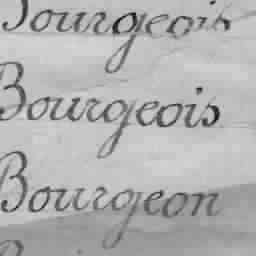 Bourgeois
Bourgeois
Bourgeon